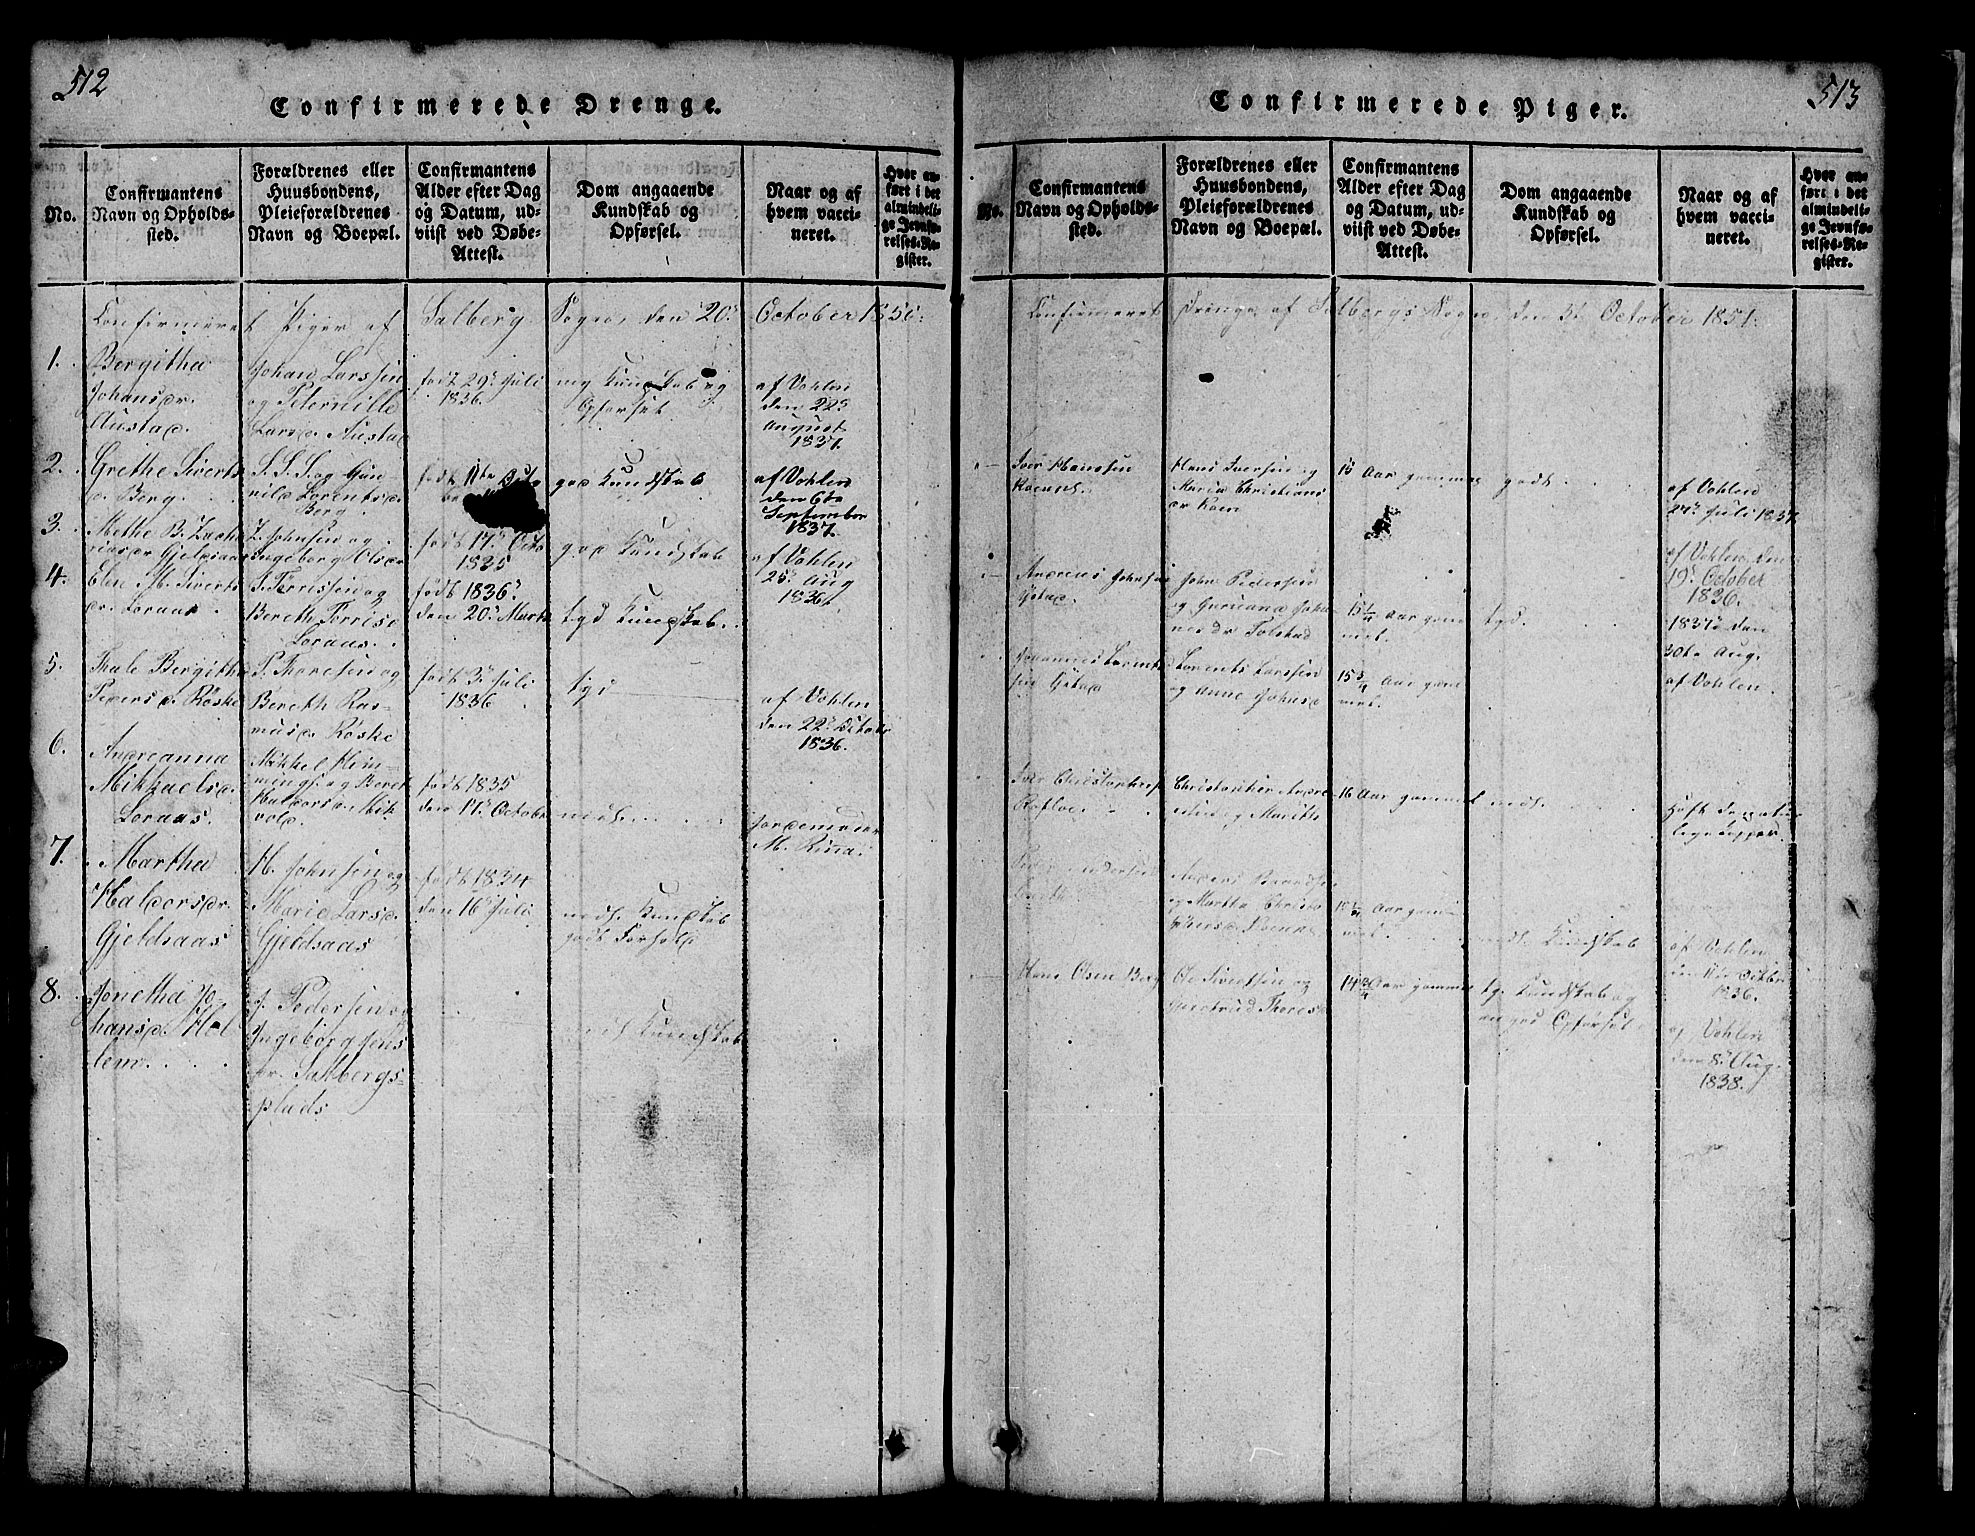 512
Confirmerede Drenge.
No.
Confirmantens
Navn og Opholds-
sted.
Forældrenes eller
Huusbondens,
Pleieforældrenes
Navn og Boepæl.
Confirmantens
Alder efter Dag
og Datum, ud-
viist ved Døbe-
Attest.
Dom angaaende
Kundskab og
Opførsel.
Naar og af
hvem vacci-
neret.
Hvor an-
ført i det
almindeli-
ge Jevnfø-
relses-Re-
gister.
Confirmeret Piger af Salberg Sogn, den 20d October 1850:
1.
Bergitha
Johansdr.
Austad.
Johan Larssen
og Peternille
Larsd. Austad
født 29d Juli
1836.
mg Kundskab og
Opførsel.
af Vohlen
den 22d
August
1837.
2.
Grethe Siverts
d. Berg.
S. S. S. og Gun
nild Lorentsdr
Berg.
født 11te
god Kundskab
af Vohlen
den 6te
September
1837.
3.
Methe B. Zacha
riasdr Gjeldsaas
Z. Johnsen og
Ingeborg Olsdr
født 17d Octo
1835
god Kundskab
af Vohlen
25d Aug
1836.
4.
Elen M. Siverts
dr. Loraas.
S. Torrissen og
Bereth Torrisd
Loraas.
født 1836d
den 20d Marts
tgd Kundskab.
5.
Thale Bergitha
Peders d. Røske
P. Thoresen og
Bereth Ras
musd. Røske
født 3d Juli
1836.
tgd
af Vohlen
den 22d Octobr
1836.
6.
Andreanna
Mikkaelsd.
Loraas.
Mikkel Hem-
mings. og Beret
Haldorsd. Mik
vold.
født 1835
den 17d October
mdl.
Jordemoder
M. Rina.
7.
Martha
Haldorsdr.
Gjeldsaas
H. Johnsen og
Marie Larsd.
Gjeldsaas
født 1834
den 16d Juli
mdl. Kundskab
godt Forhold
8.
Jonetha Jo-
hansd. Hal
lem.
J. Pedersen og
Ingeborg Jens
dr. Salbergs-
plads
mdl Kundskab
513
Confirmerede Piger.
No.
Confirmantens
Navn og Opholds-
sted.
Forældrenes eller
Huusbondens,
Pleieforældrenes
Navn og Boepæl.
Confirmantens
Alder efter Dag
og Datum, ud-
viist ved Døbe-
Attest.
Dom angaaende
Kundskab og
Opførsel.
Naar og af
hvem vacci-
neret.
Hvor an-
ført i det
almindeli-
ge Jevnfø-
relses-Re-
gister.
Confirmeret Drenge af Salbergs Sogn, den 5t October 1851.
Iver Hanssen
Hans Iversen og
Maria Christians
dr
15 Aar gammel
godt.
af Vohlen
27d Juli 1837.
Andreas Johnsen
John Pedersen
og Guruanna Joha
nesdr Tolstad
15 1/4 Aar gam
mel.
tgd.
af Vohlen den
19d October
1836.
Johannes Lorents
sen
Lorents Larssen
og Anne Johnsd
15 3/4 Aar gam
mel.
1837d den
30te Aug.
af Vohlen.
Iver Christophers
Christopher Andre
16 Aar gammel
mdl.
Anders
og Martha Christo
phersd.
Aar gam-
mel.
mdl. Kundskab
af Vohlen
1836.
Hans Olsen Berg
Ole Sivertsen og
Gjertrud Thoresd
14 3/4 Aar gammel
tg. Kundskab og
Opførsel.
af Vohlen
den 8d Aug.
1838.